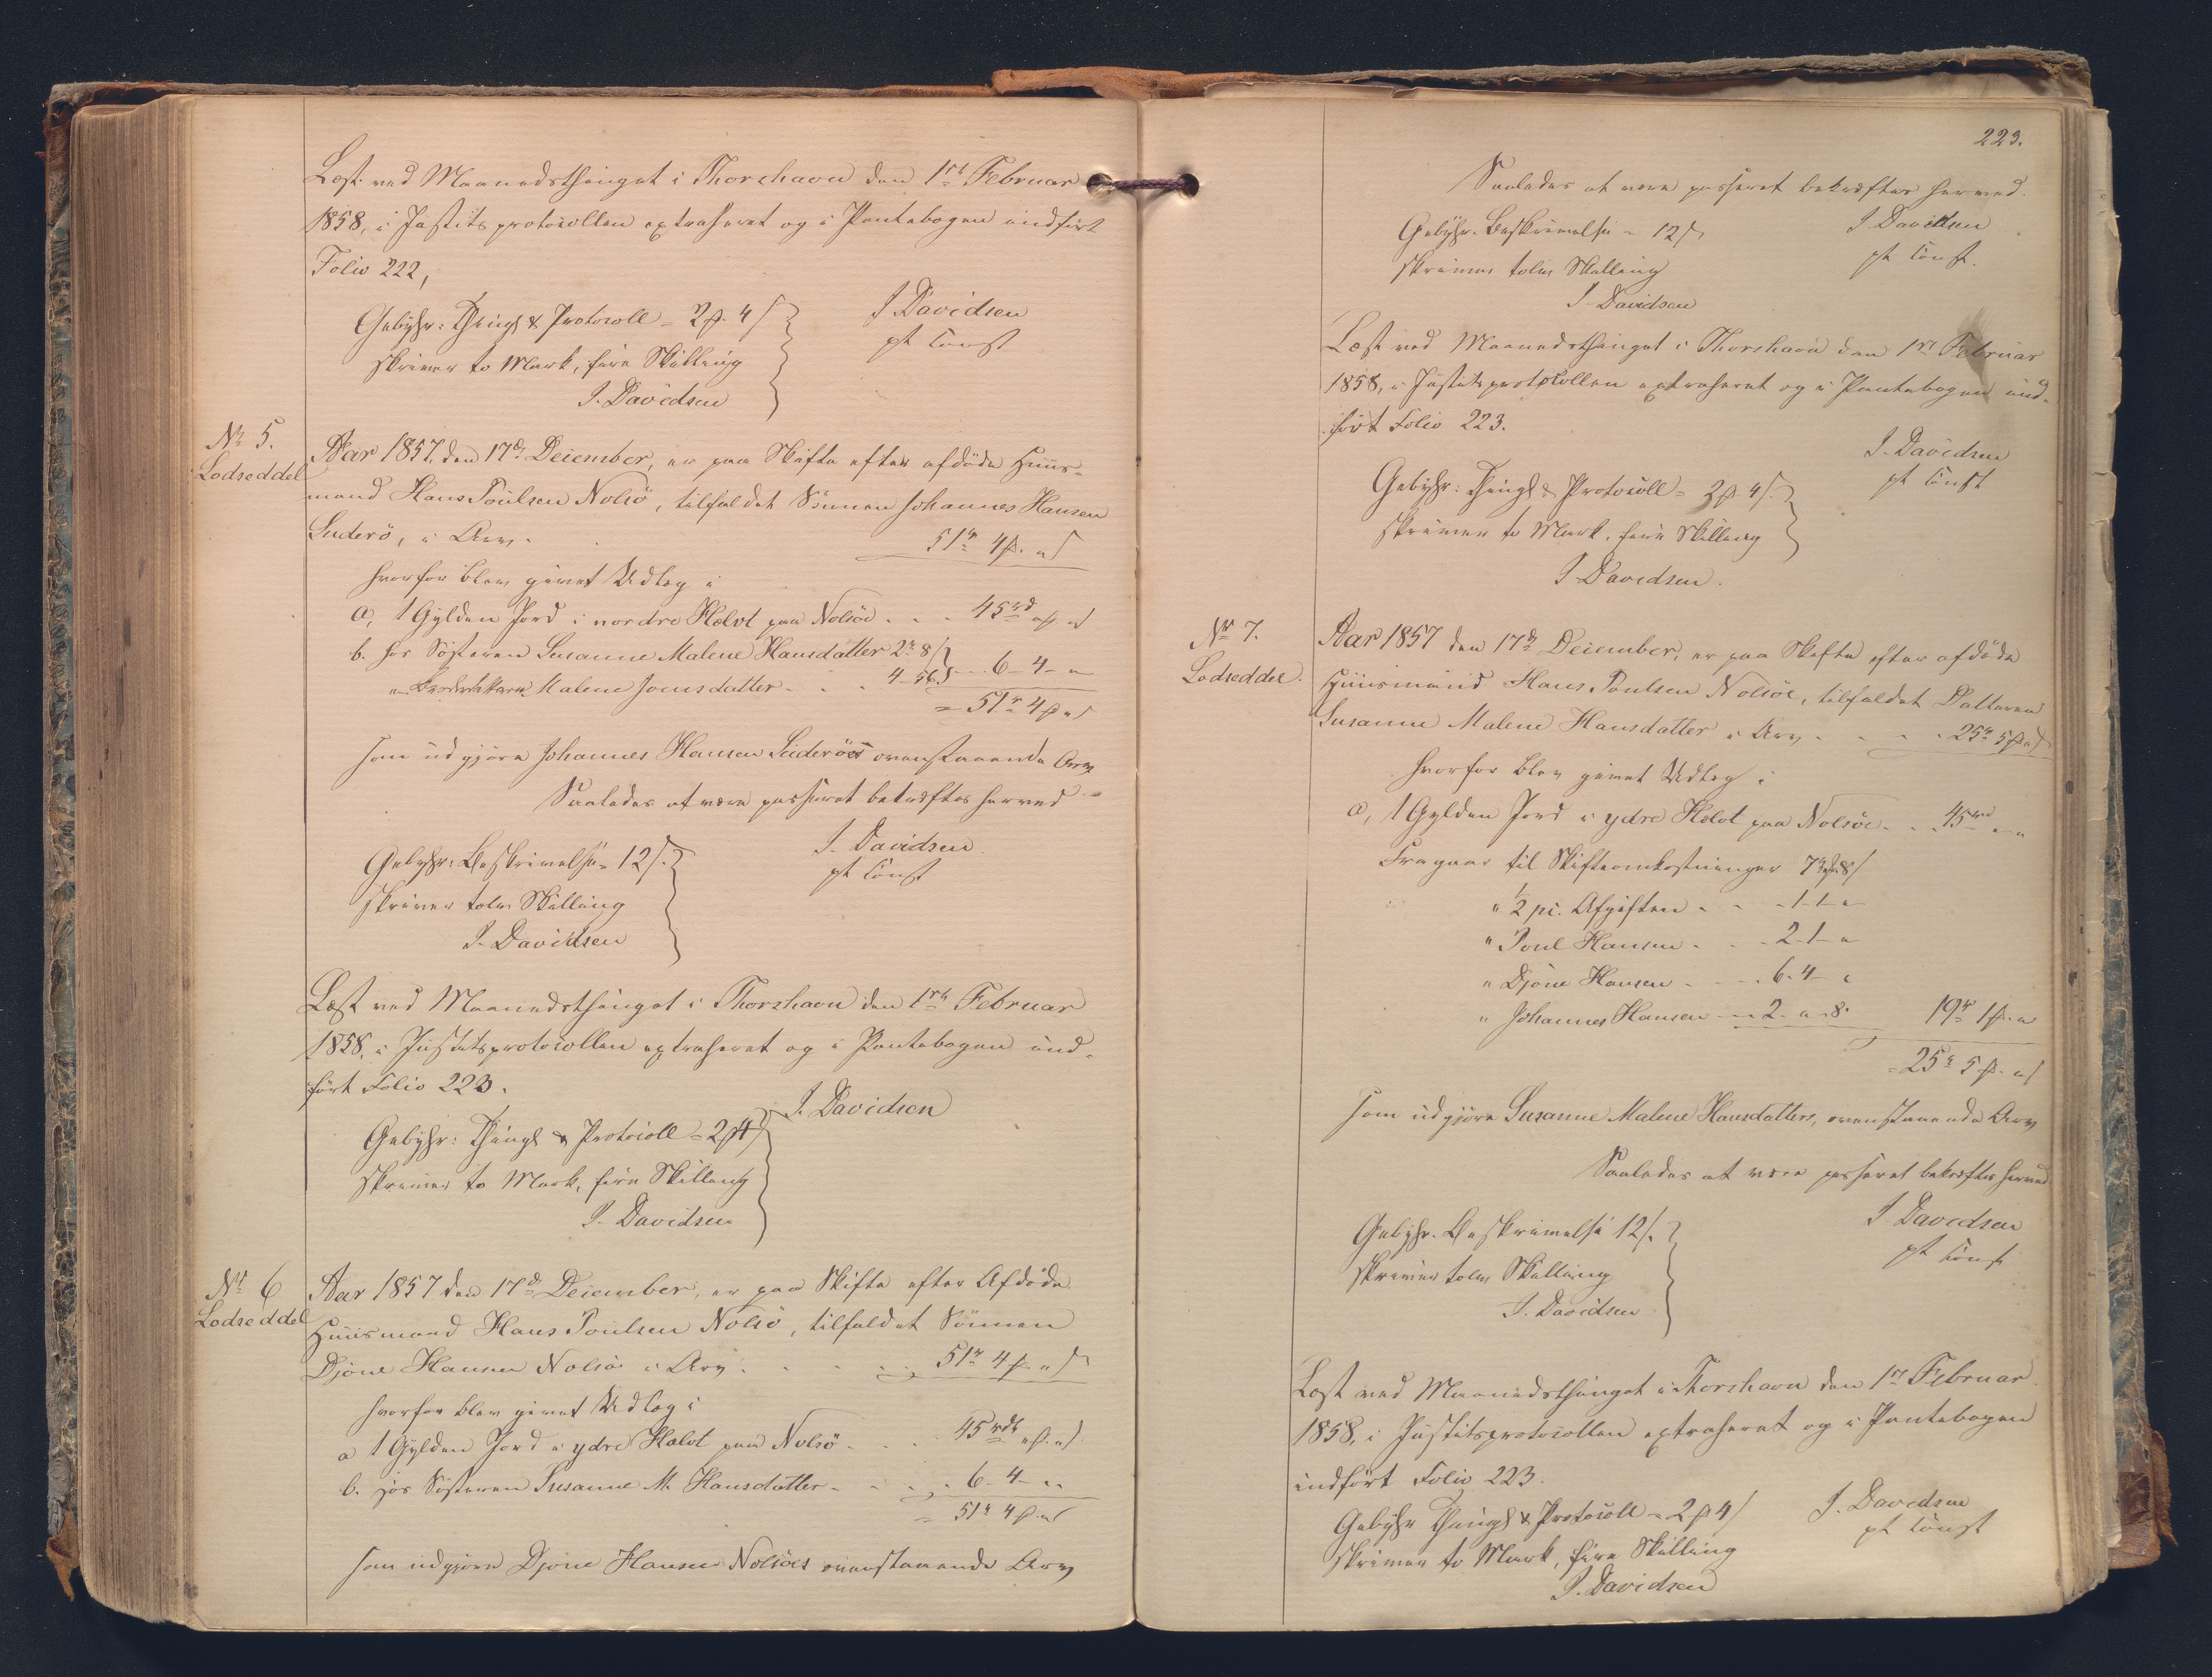 Læst ved Maanedsthinget i Thorshavn den 1ste Februar
1858, i Justitsprotocollen extraheret og i Pantebogen indført
Folio 222,
Gebyhr: Thingl & Protocoll = 2 ₻. 4 ß
skriver to Mark, fire Skilling
J. Davidsen
J Davidsen
pt const
No 5.
Lodseddel
Aar 1857, den 17de December, er paa Skifte efter afdøde Huus-
mand Hans Poulsen Nolsö, tilfaldet Sönnen Johannes Hansen
Suderö, i Arv. 51rd 4 ₻. " ß
hvorfor blev givet Udlæg i
a, 1 Gylden Jord i nordre Hælvt paa Nolsöe . . . 45rd " ₻ " ß
b. hos Søsteren Susanne Malene Hansdatter 2rd " 8 ß
" Malene Joensdatter . . . 4-3-8 ß - - 6-4-"
= 51rd 4 ₻ " ß
som udgjøre Johannes Hansen Suderöes ovenstaaende Arv.
Saaledes at være passeret bekræftes herved
J. Davidsen.
pt const
Gebyhr: Beskrivelse = 12 ß.
skriver tolv Skilling
J. Davidsen
Læst ved Maanedsthinget i Thorshavn den 1ste Februar
1858, i Justitsprotocollen extraheret og i Pantebogen ind-
ført Folio 223.
J. Davidsen
Gebyhr: Thingl & Protocoll = 2 ₻ 4 ß
skriver to Mark, fire Skilling
J. Davidsen
No 6
Lodseddel
Aar 1857 den 17de December, er paa Skifte efter Afdøde
Huusmand Hans Poulsen Nolsö, tilfaldet Sönnen
Djöne Hansen Nolsöe i Arv . . . . 51rd 4 ₻ " ß
hvorfor blev givet Udlæg i
a 1 Gylden Jord i ydre Hælvt paa Nolsö . . . 45rdl " ₻. " ß.
b. hos Søsteren Susanne M. Hansdatter . . . . 6-4-"
= 51rd 4 ₻. " ß
som udgjøre Djöne Hansen Nolsöes ovenstaaende Arv
223.
Saaledes at være passeret bekræftes herved.
J. Davidsen
pt const.
Gebyhr. Beskrivelse = 12 ß
skriver tolv Skilling
J. Davidsen
Læst ved Maanedsthinget i Thorshavn den 1ste Februar
1858, i Justitsprotocollen extraheret og i Pantebogen ind-
ført Folio 223.
J. Davidsen
pt const
Gebyhr: Thingl & Protocoll = 2 ₻ 4 ß.
skriver to Mark, fire Skilling
J. Davidsen.
No 7.
Lodseddel.
Aar 1857 den 17de December, er paa Skifte efter afdøde
Huusmand Hans Poulsen Nolsöe, tilfaldet Datteren
Susanne Malene Hansdatter i Arv . . . . 25rd 5 ₻ " ß
hvorfor blev givet Udlæg i
a, 1 Gylden Jord i ydre Hælvt paa Nolsöe . . . 45rd " "
Fragaar til Skifteomkostninger 7rd " ₻ 8 ß
" ½ pc. Afgiften . . . 1-1-"
" Poul Hansen . . . 2-1-"
" Djöne Hansen . . . 6-4-"
" Johannes Hansen - - 2-"-8. 19rd 1 ₻. "
= 25rd 5 ₻. " ß
som udgjöre Susanne Malene Hansdatters, ovenstaaende Arv
Saaledes at være passeret bekræftes herved
J Davidsen
pt const
Gebyhr. Beskrivelse 12 ß.
skriver tolv Skilling
J. Davidsen
Læst ved Maanedsthinget i Thorshavn den 1ste Februar
1858, i Justitsprotocollen extraheret og i Pantebogen
indført Folio 223.
Gebyhr Thingl & Protocoll = 2 ₻ 4 ß
skriver to Mark, fire Skilling
J. Davidsen
J. Davidsen
pt const